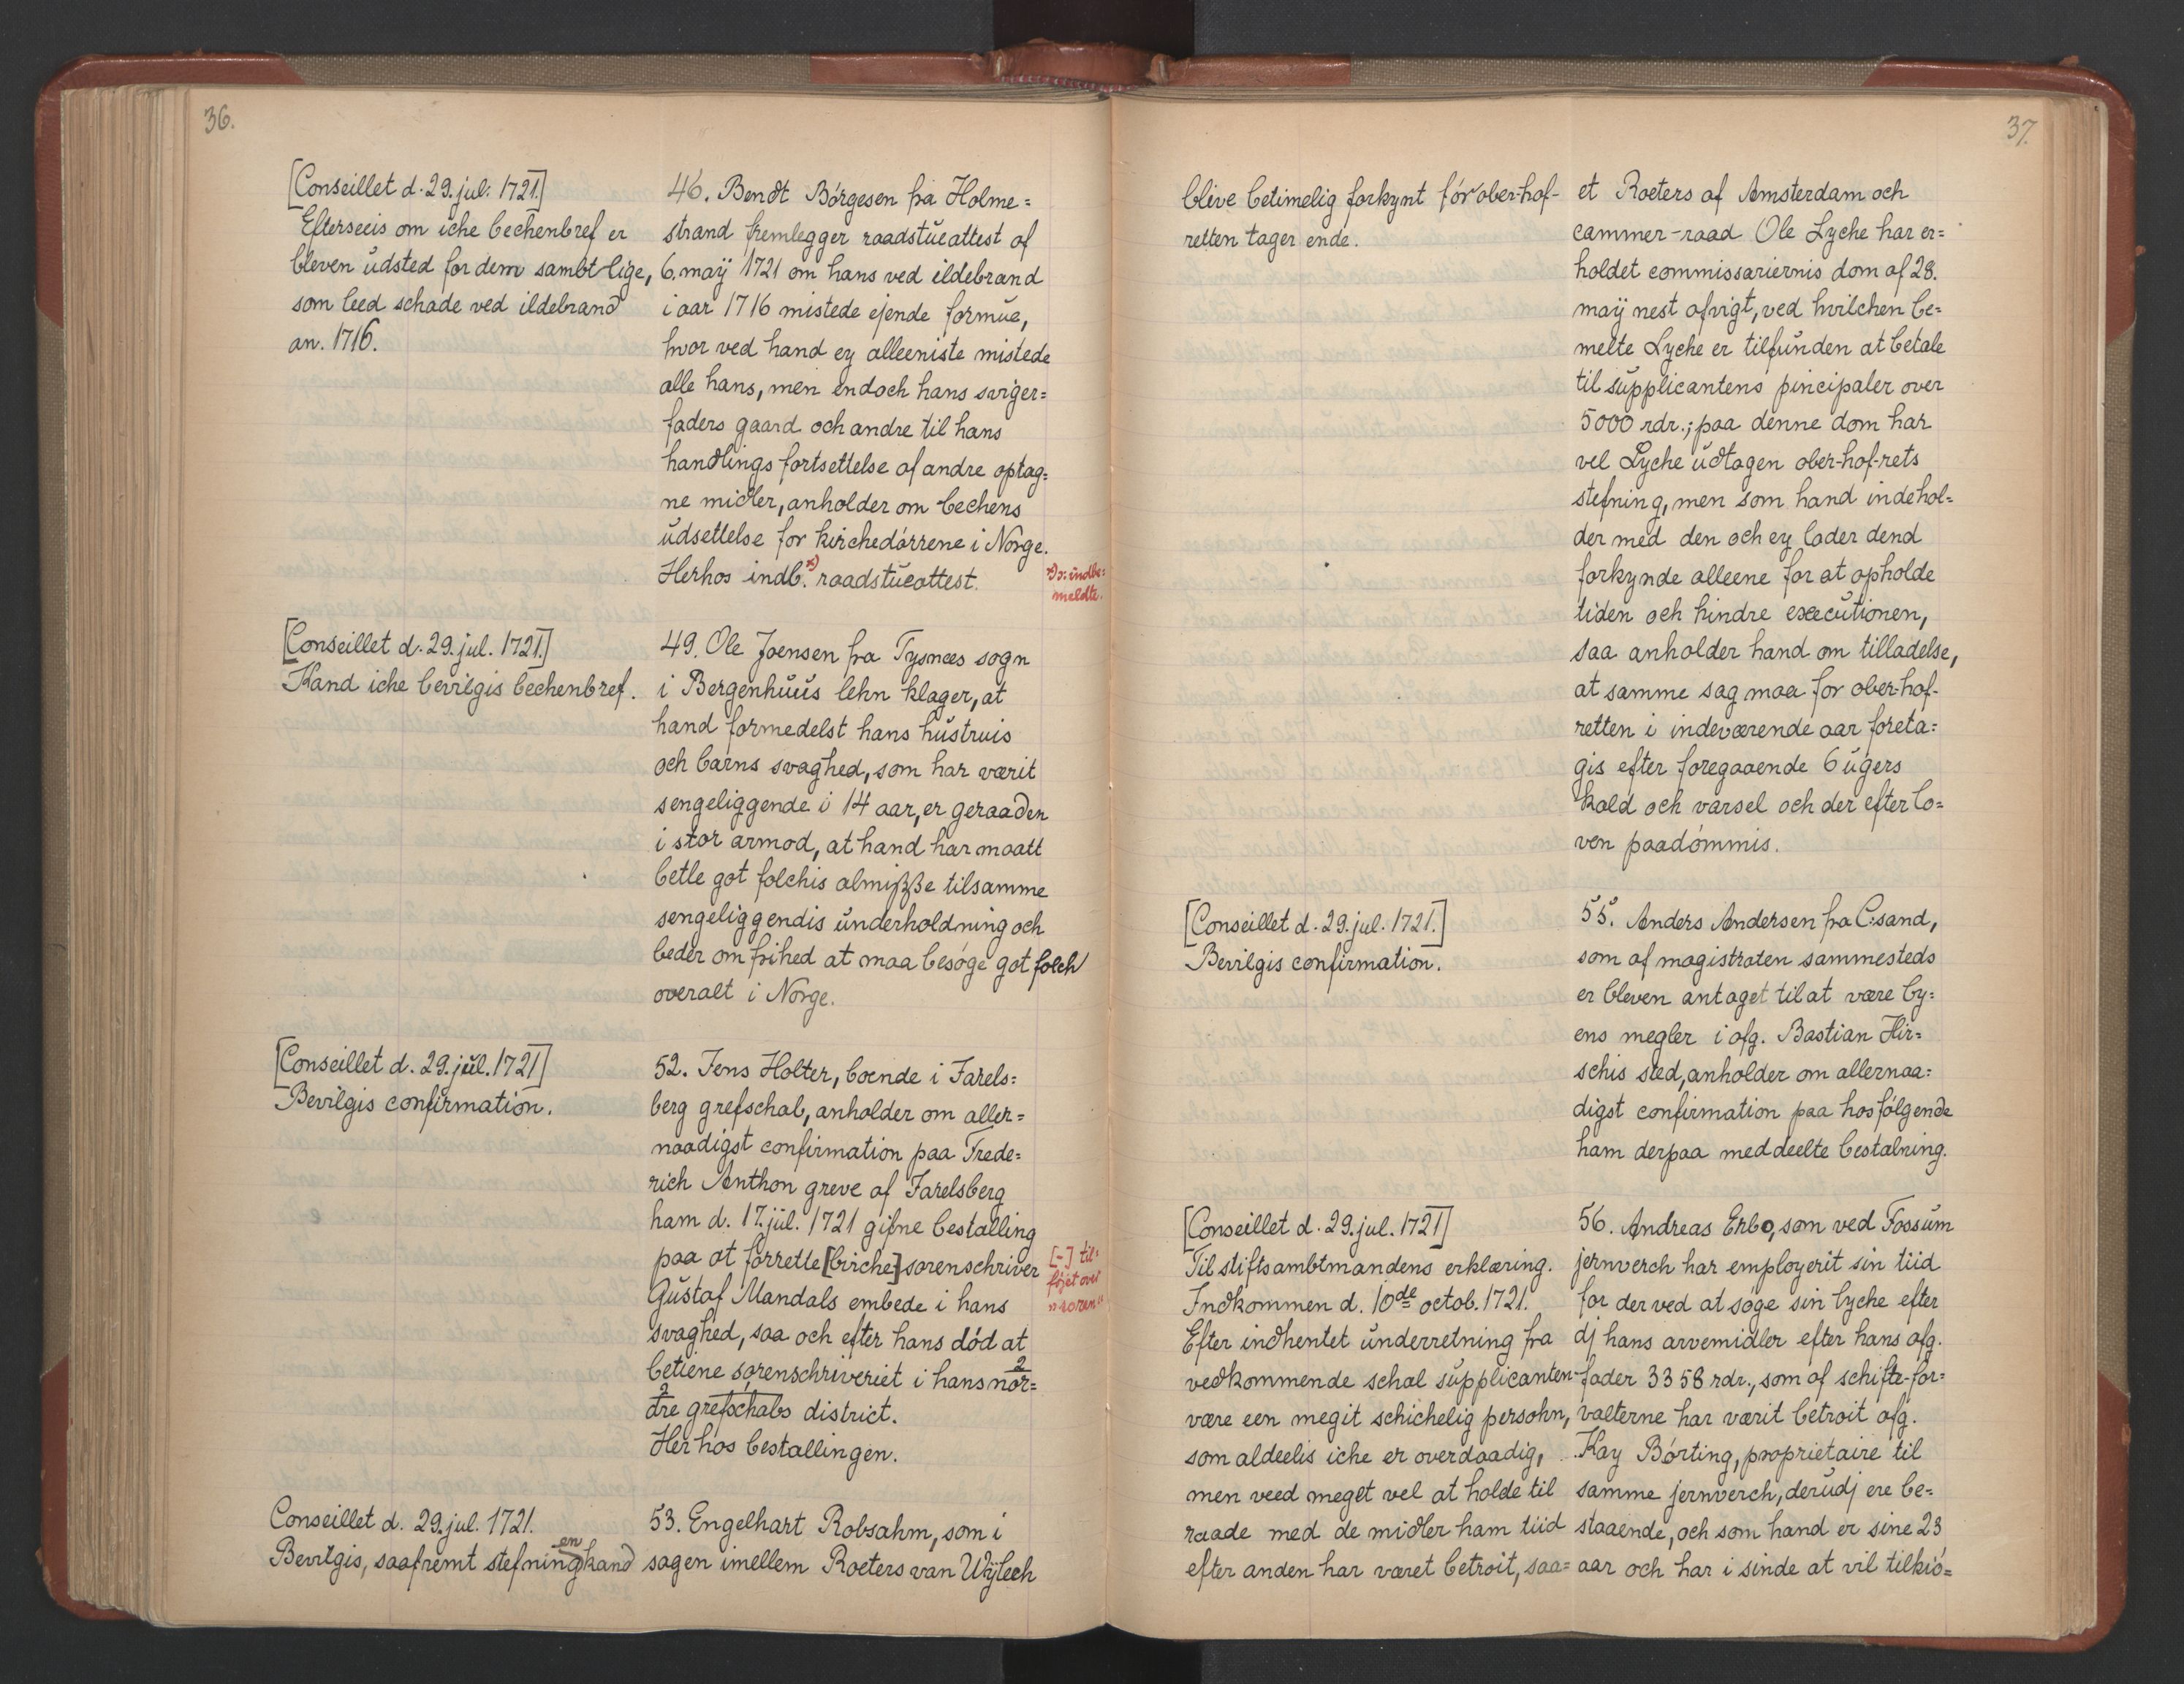 36.
[Conseillet d. 29. jul. 1721.]
Efterseeis om iche bechenbref er
bleven udsted for dem sambtlige,
som leed schade ved ildebrand
an. 1716.
46. Bendt Börgesen fra Holme=
strand fremlegger raadstueattest af
6. maÿ 1721 om hans ved ildebrand
i aar 1716 mistede ejende formue,
hvor ved hand ey alleeniste mistede
alle hans, men endoch hans sviger=
faders gaard och andre til hans
handlings fortsettelse af andre optag=
ne midler, anholder om bechens
udsettelse for kirchedörrene i Norge.
Herhos indb. *) raadstueattest.
*) ɔ: indbe=
meldte.
[Conseillet d. 29. jul. 1721.]
Kand iche bevilgis bechenbref.
49. Ole Joensen fra Tysnæs sogn
i Bergenhuus lehn klager, at
hand formedelst hans hustruis
och barns svaghed, som har værit
sengeliggende i 14 aar, er geraaden
i stor armod, at hand har maatt
betle got folchis almisse til samme
sengeliggendis underholdning och
beder om frihed at maa besöge got folch
overalt i Norge.
[Conseillet d. 29. jul. 1721]
Bevilgis confirmation.
52. Jens Holter, boende i Jarels=
berg grefschab, anholder om aller=
naadigst confirmation paa Frede=
rich Anthon greve af Jarelsberg
ham d. 17. jul. 1721 gifne bestalling
paa at forrette [birche] sorenschriver
Gustaf Mandals embede i hans
svaghed, saa och efter hans död at
betiene sorenschriveriet i hans nor=
dre grefschabs district.
Her hos bestallingen.
[-] til=
föjet over
"soren"
2
2
Conseillet d. 29. jul. 1721.
Bevilgis, saafremt stefningen kand
53. Engelhart Robsahm, som i
sagen imellem Roeters van Wÿlech
37.
blive betimelig forkyntför ober-hof-
retten tager ende.
et Roeters af Amsterdam och
cammer-raad Ole Lyche har er=
holdet commissariernis dom af 28.
maÿ nest afvigt, ved hvilchen be=
melte Lyche er tilfunden at betale
til supplicantens pincipaler over
5000 rdr.; paa denne dom har
vel Lyche udtagen ober-hof-rets
stefning, men som hand indehol=
der med den och ey lader dend
forkynde alleene for at opholde
tiden och hindre executionen,
saa anholder hand om tilladelse,
at samme sag maa for ober-hof-
retten i indeværende aar foreta=
gis efter foregaaende 6 ugers
kald och varsel och der efter lo=
ven paadömmis.
[Conseillet d. 29. jul. 1721.]
Bevilgis confirmation.
55. Anders Andersen fra C:sand,
som af magistraten sammesteds
er bleven antaget til at være by=
ens megler i afg. Bastian Hir=
schis sted, anholder om allernaa=
digst confirmation paa hosfölgende
ham derpaa meddeelte bestalning.
[Conseillet d. 29. jul. 1721]
Til stiftsambtmandens erklæring.
Indkommen d. 10de octob. 1721.
Efter indhentet underretning fra
vedkommende schal supplicanten
være een megit schichelig persohn,
som aldeelis iche er overdaadig,
men veed meget vel at holde til
raade med de midler ham tiid
efter anden har været betroit, saa=
56. Andreas Erbo, som ved Fossum
jernverch har employerit sin tiid
for der ved at söge sin lyche efter
dj hans arvemidler efter hans afg.
fader 3358 rdr., som af schifte-for=
valterne har værit betroit afg.
Kay Börting, proprietaire til
samme jernverch, derudj ere be=
staaende, och som hand er sine 23
aar och har i sinde at vil tilkiö=